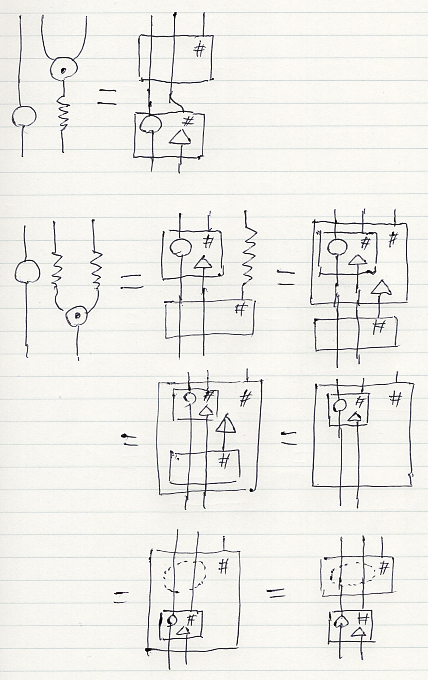 #
= #
= # # = # #
#
#
= # # = # #
#
= # = #
# #